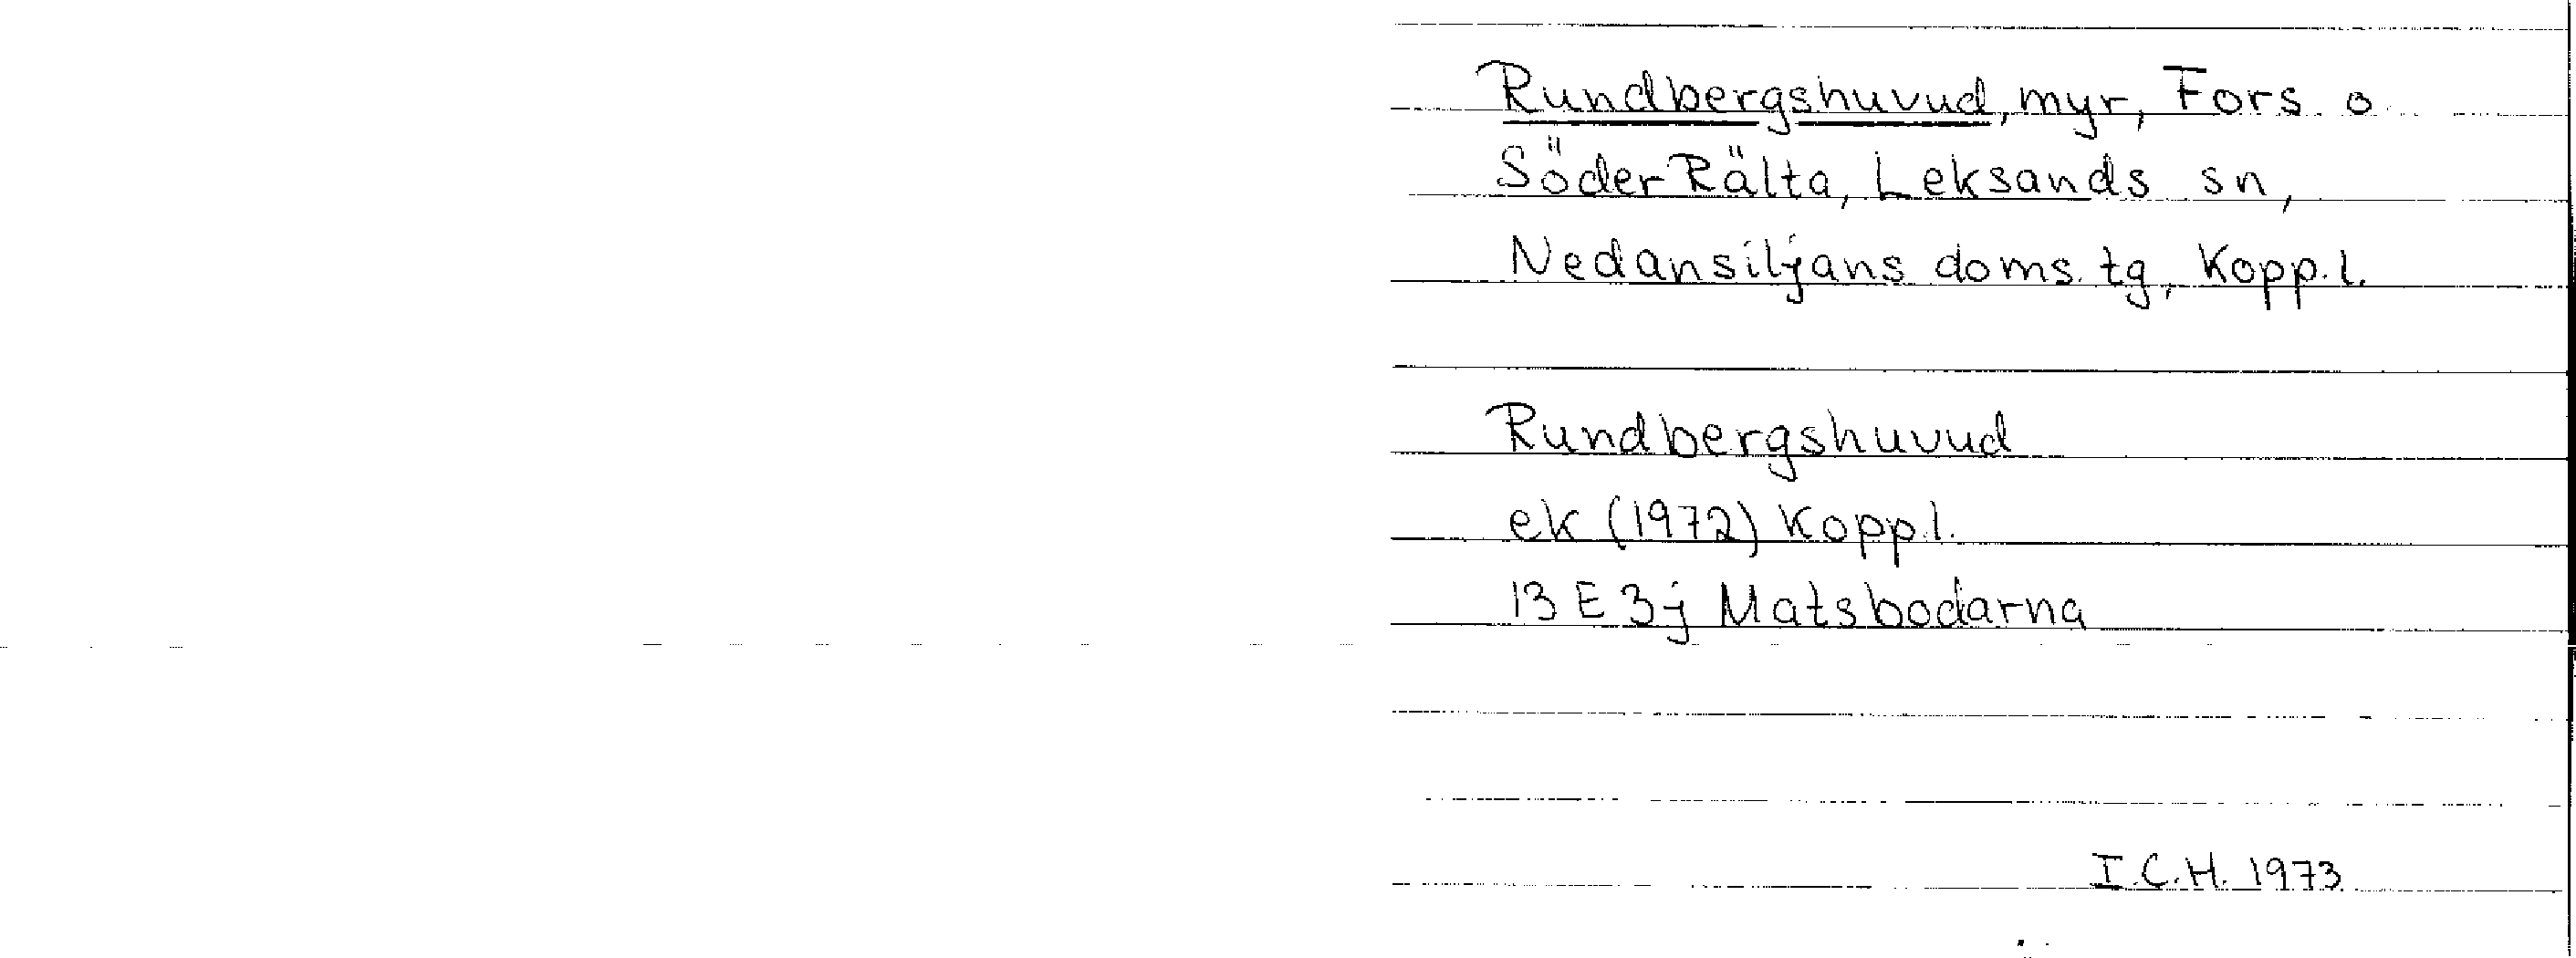 Rundbergshuvud, myr, Fors o
Söder Rälta, Leksands sn,
Nedansiljans doms. tg, Kopp. l.
Rundbergshuvud
ek (1972) Kopp l.
13 E 3j Matsbodarna
I.C.H. 1973